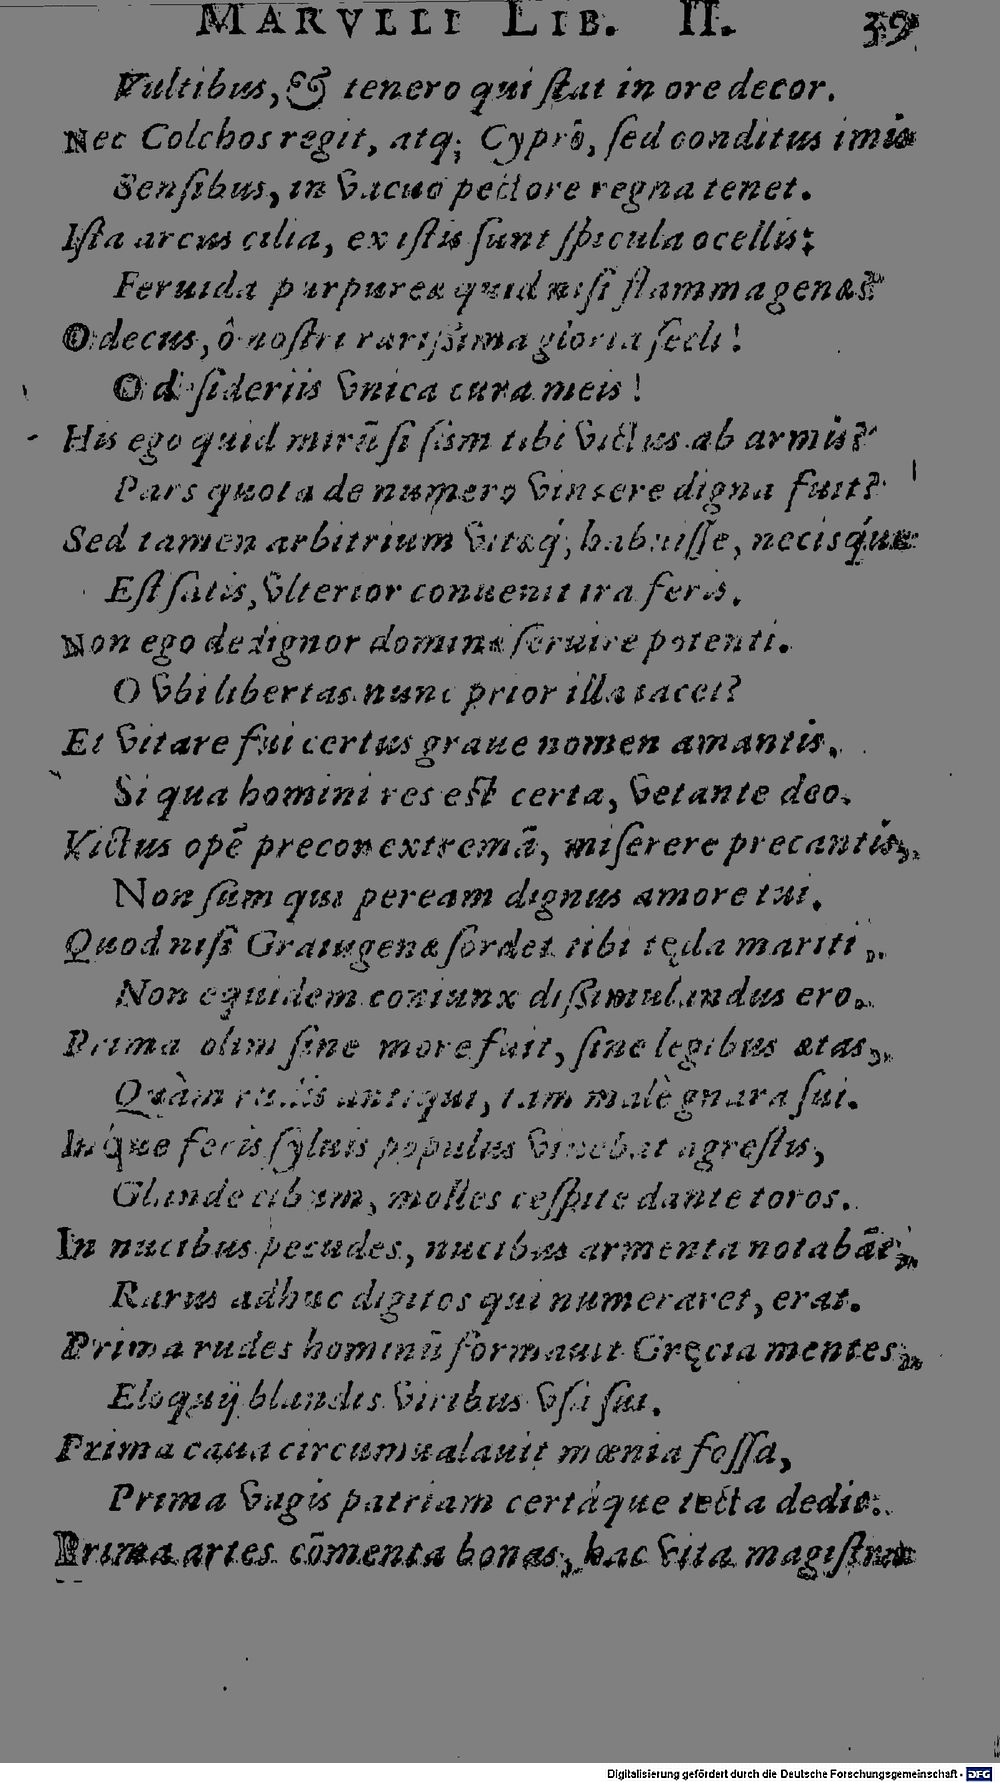 MARVLLI LIB. II. 39
Vultibus, & tenero qui ſtat in ore decor.
Nec Colchos regit, atq; Cyprō, ſed conditus imis
Senſibus, in vacuo pectore regna tenet.
Iſta arcus cilia, ex iſtis ſunt ſpicula ocellis:
Feruida purpureæ quid niſi flamma genæ?
O decus, ô noſtri rariſsima gloria ſecli!
O deſideriis vnica cura meis!
His ego quid mirũ ſi ſum tibi victus ab armis?
Pars quota de numero vincere digna fuit?
Sed tamen arbitrium vitæq́; habuiſſe, necisq́ue
Eſt ſatis, vlterior conuenit ira feris.
Non ego dedignor dominæ ſeruire potenti.
O vbi libertas nunc prior illa iacet?
Et vitare fui certus graue nomen amantis,
Si qua homini res eſt certa, vetante deo.
Victus opẽ precor extremã, miſerere precantis,
Non ſum qui peream dignus amore tui.
Quod niſi Graiugenæ ſordet tibi tęda mariti,
Non equidem coniunx diſsimulandus ero.
Prima olim ſine more fuit, ſine legibus ætas,
Quàm rudis antiqui, tam malè gnara ſui.
Inq́ue feris ſyluis populus viuebat agreſtis,
Glande cibum, molles ceſpite dante toros.
In nucibus pecudes, nucibus armenta notabãt,
Rarus adhuc digitos qui numeraret, erat.
Prima rudes hominũ formauit Gręcia mentes,
Eloquij blandis viribus vſa ſui.
Prima caua circumualauit mœnia foſſa,
Prima vagis patriam certáque tecta dedit.
Prima artes cõmenta bonas, hac vita magiſtra
Digitalisierung gefördert durch die Deutsche Forschungsgemeinschaft - DFG